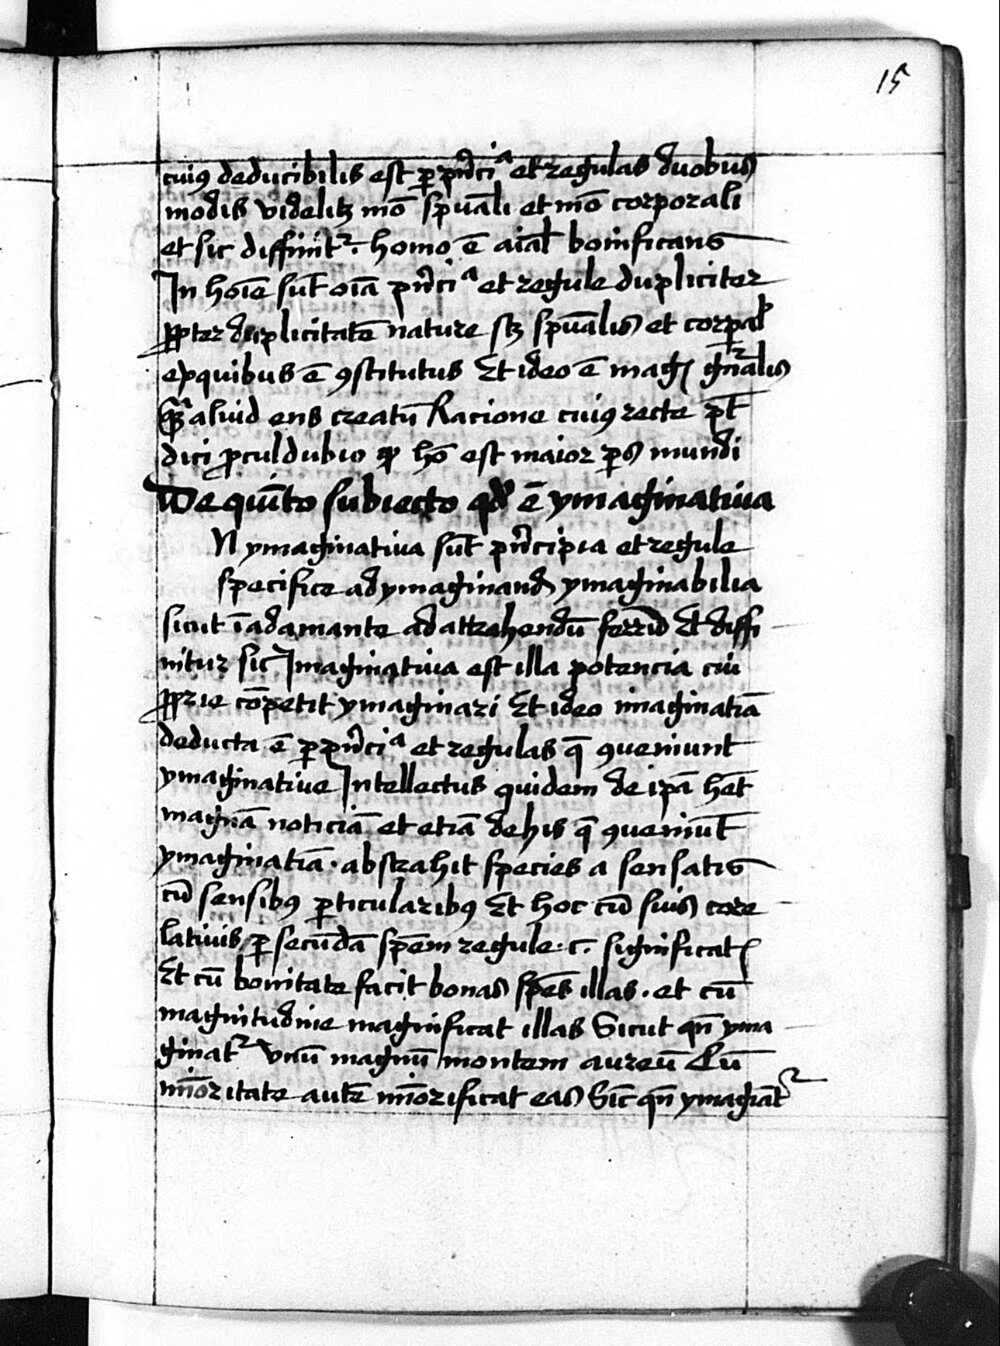 15
cuiꝯ deducibilis est ꝑ pͥncipͣ et regulas duobus
modis videlitꝫ mō spūali et mō corporali
et sic diffinitᷣ. homo ē aial̄ bonificans
In hoīe sūt oīa pͥncipͣ et regule dupliciter
ꝓpter duplicitatē nature sꝫ spūalis et corpal̄
ex quibus ē ꝯstitutus Et ideo ē magꝭ gn̄ralis
qͣꝫ aliud ens creatū Racione cuiꝯ recte pt̄
dici ꝓculdubio ꝙ hō est maior ꝑs mundi
De quīto subiecto qd̄ ē ymaginatiua
N ymaginatiua sūt pͥncipia et regule
specifice ad ymaginand̄ ymaginabilia
sicut ī adamante ad attrahendū ferrū Et diffi
nitur sic Imaginatiua est illa potencia cui
ꝓprie cōpetit ymaginari Et ideo imaginatiā
deducta ē ꝑ pͥncipͣ et regulas q̄ ꝯueniunt
ymaginatiue Intellectus quidem de ipā het̄
magnā noticiā et etiā de his q̄ ꝯueniūt
ymaginatiā. abstrahit species a sensatis
cū sensibꝯ ꝑticularibꝯ Et hoc cū suis corre
latiuis ꝑ secūdā spēm regule .c. significatꝭ
Et cū bonitate facit bonas spēs illas. et cū
magnitudine magnificat illas Sicut qn̄ yma
ginatᷣ vnū magnū montem aureū Cū
mīoritate autē mīorificat eas Sic̄ qn̄ ymagiātᷣ